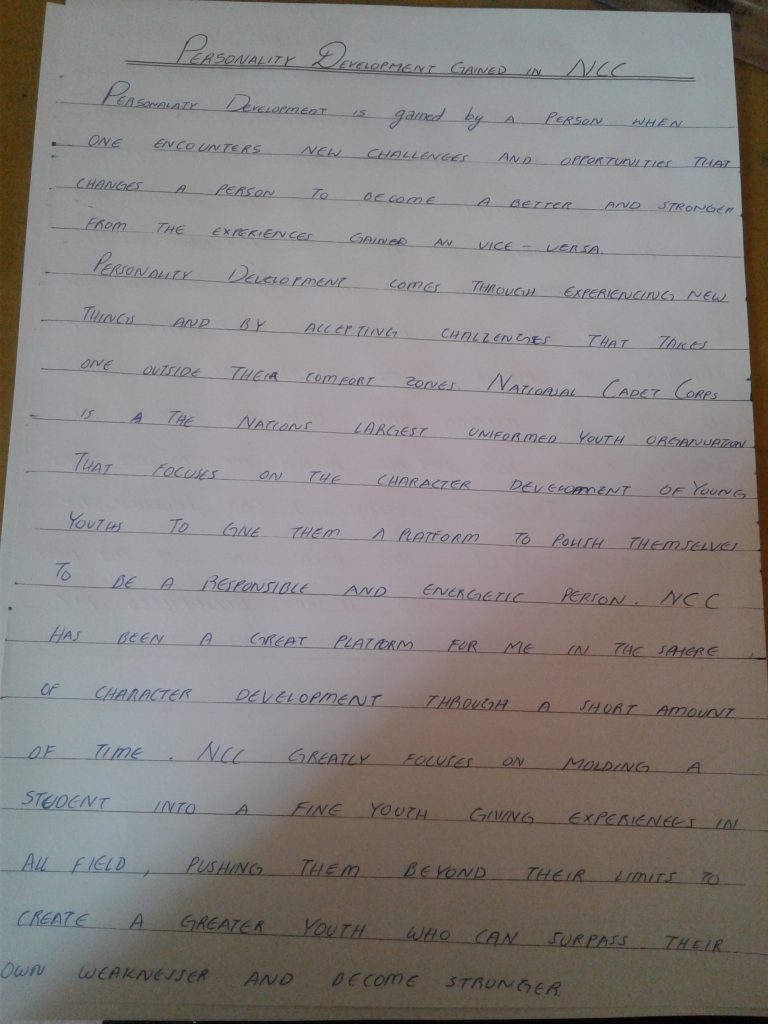 PERSONALITY DEVELOPMENT GAINED IN NCC
PERSONALATY DEVELOPMENT IS gained by A PERSON WHEN
ONE ENCOUNTERS NEW CHALLENGES AND OPPORTUNITIES THAT
CHANGES A PERSON TO BECOME A BETTER AND STRONGER
FROM THE EXPERIENCES GAINED AN VICE - VERSA.
PERSONALITY DEVELOPMENT COMES THROUGH EXPERIENCING NEW
THINGS AND BY ACCEPTING CHALLENGES THAT TAKES
ONE OUTSIDE THEIR COMFORT ZONES. NATIONAL CADET CORPS
IS A THE NATIONS LARGEST UNIFORMED YOUTH ORGANIZATION
THAT FOCUSES ON THE CHARACTER DEVELOPMENT OF YOUNG
YOUTHS TO GIVE THEM A PLATFORM TO POLISH THEMSELVES
TO BE A RESPONSIBLE AND ENERGETIC PERSON. NCC
HAS BEEN A GREAT PLATFORM FOR ME IN THE SPHERE
OF CHARACTER DEVELOPMENT THROUGH A SHORT AMOUNT
OF TIME. NCC GREATLY FOCUSES ON MOLDING A
STUDENT INTO A FINE YOUTH GIVING EXPERIENCES IN
ALL FIELD, PUSHING THEM BEYOND THEIR LIMITS TO
CREATE A GREATER YOUTH WHO CAN SURPASS THEIR
OWN WEAKNESSER AND BECOME STRONGER.